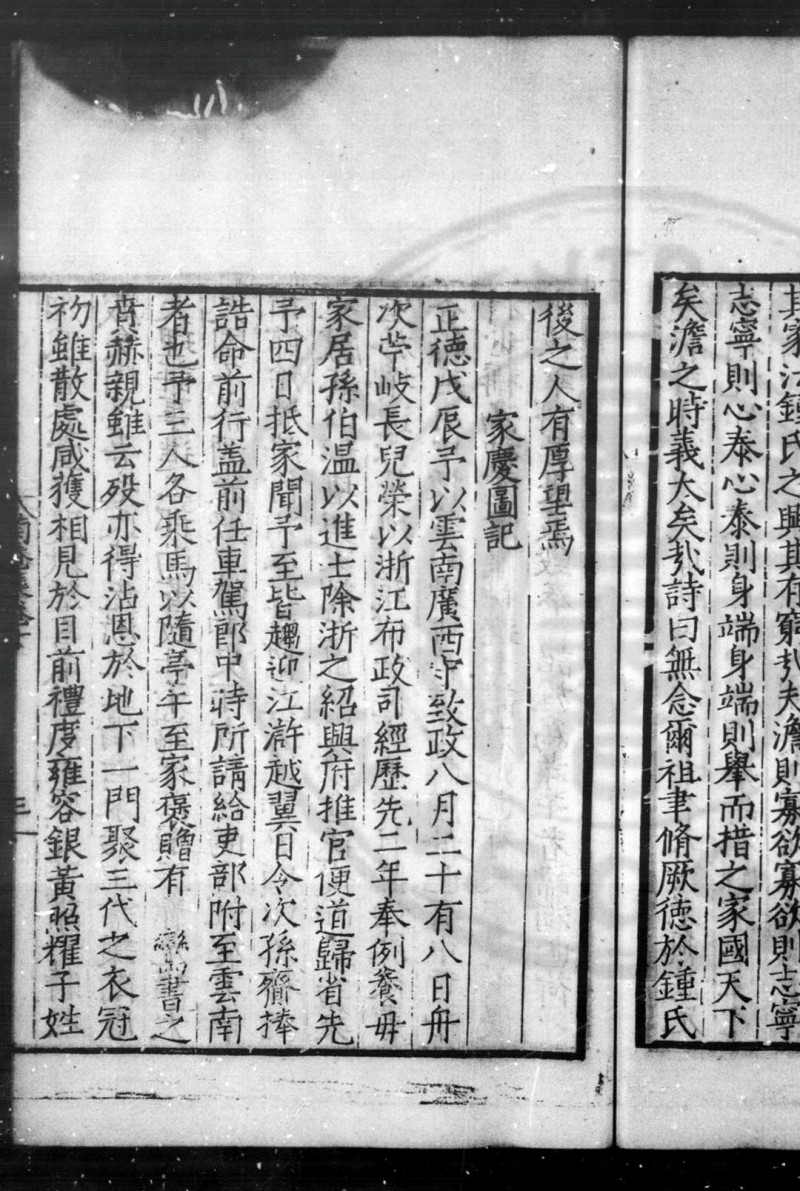 其家江鍾氏之興其有窮㢤夫澹則寡欲寡欲則志寧
志寧則心泰心泰則身端身端則舉而措之家國天下
矣澹之時義大矣㢤詩曰無念爾祖聿脩厥德於鍾氏
後之人有厚望焉
家慶圖記
正德戊辰予以雲南廣西守致政八月二十有八日舟
次苧岐長兒榮以浙江布政司經歷先二年奉例養母
家居孫伯溫以進士除浙之紹興府推官便道歸省先
予四日抵家聞予至皆趨迎江滸越翼日令次孫齋捧
誥命前行盖前任車駕郎中時所請給吏部附至雲南
者也予三人各乘馬以隨亭午至家褒贈有 鸞書之
賁赫親雖云歿亦得沾恩於地下一門聚三代之衣冠
初雖散處咸獲相見於目前禮度雍容銀黃照耀子姓